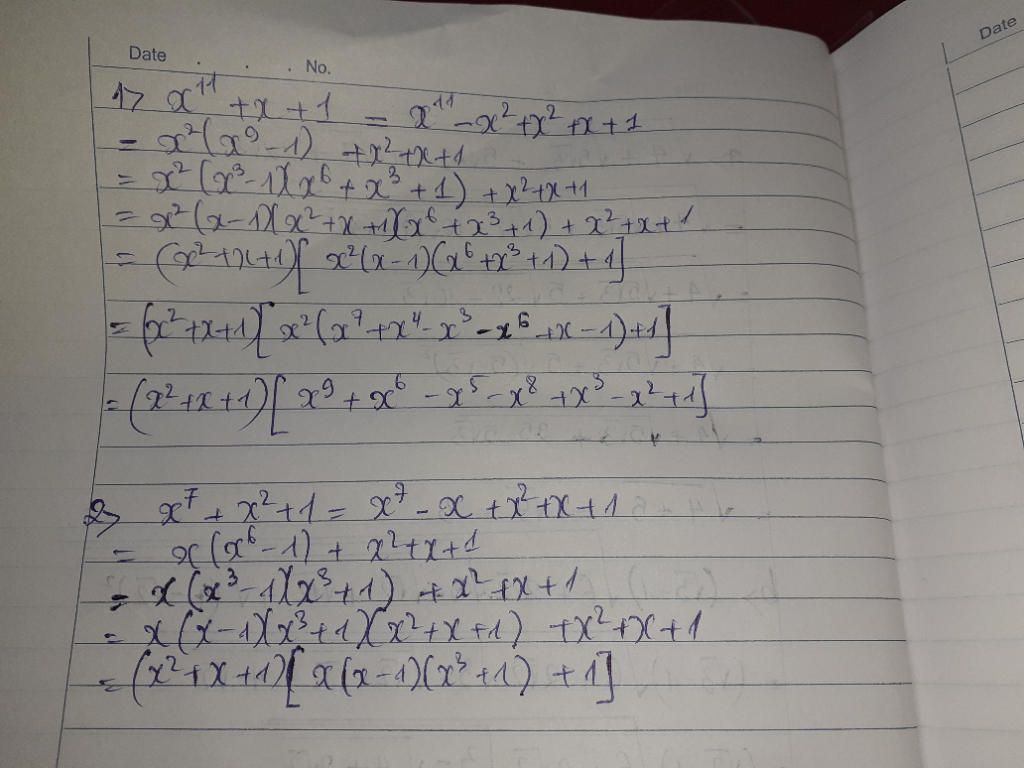 Date . . . No.
Date
1> x¹¹ + x + 1 = x¹¹ - x² + x² + x + 1
= x²(x⁹ - 1) + x² + x + 1
= x²(x³ - 1)(x⁶ + x³ + 1) + x² + x + 1
= x²(x - 1)(x² + x + 1)(x⁶ + x³ + 1) + x² + x + 1
= (x² + x + 1)[x²(x - 1)(x⁶ + x³ + 1) + 1]
= (x² + x + 1)[x²(x⁷ + x⁴ - x³ - x⁶ + x - 1) + 1]
= (x² + x + 1)[x⁹ + x⁶ - x⁵ - x⁸ + x³ - x² + 1]
2> x⁷ + x² + 1 = x⁷ - x + x² + x + 1
= x(x⁶ - 1) + x² + x + 1
= x(x³ - 1)(x³ + 1) + x² + x + 1
= x(x - 1)(x³ + 1)(x² + x + 1) + x² + x + 1
= (x² + x + 1)[x(x - 1)(x³ + 1) + 1]